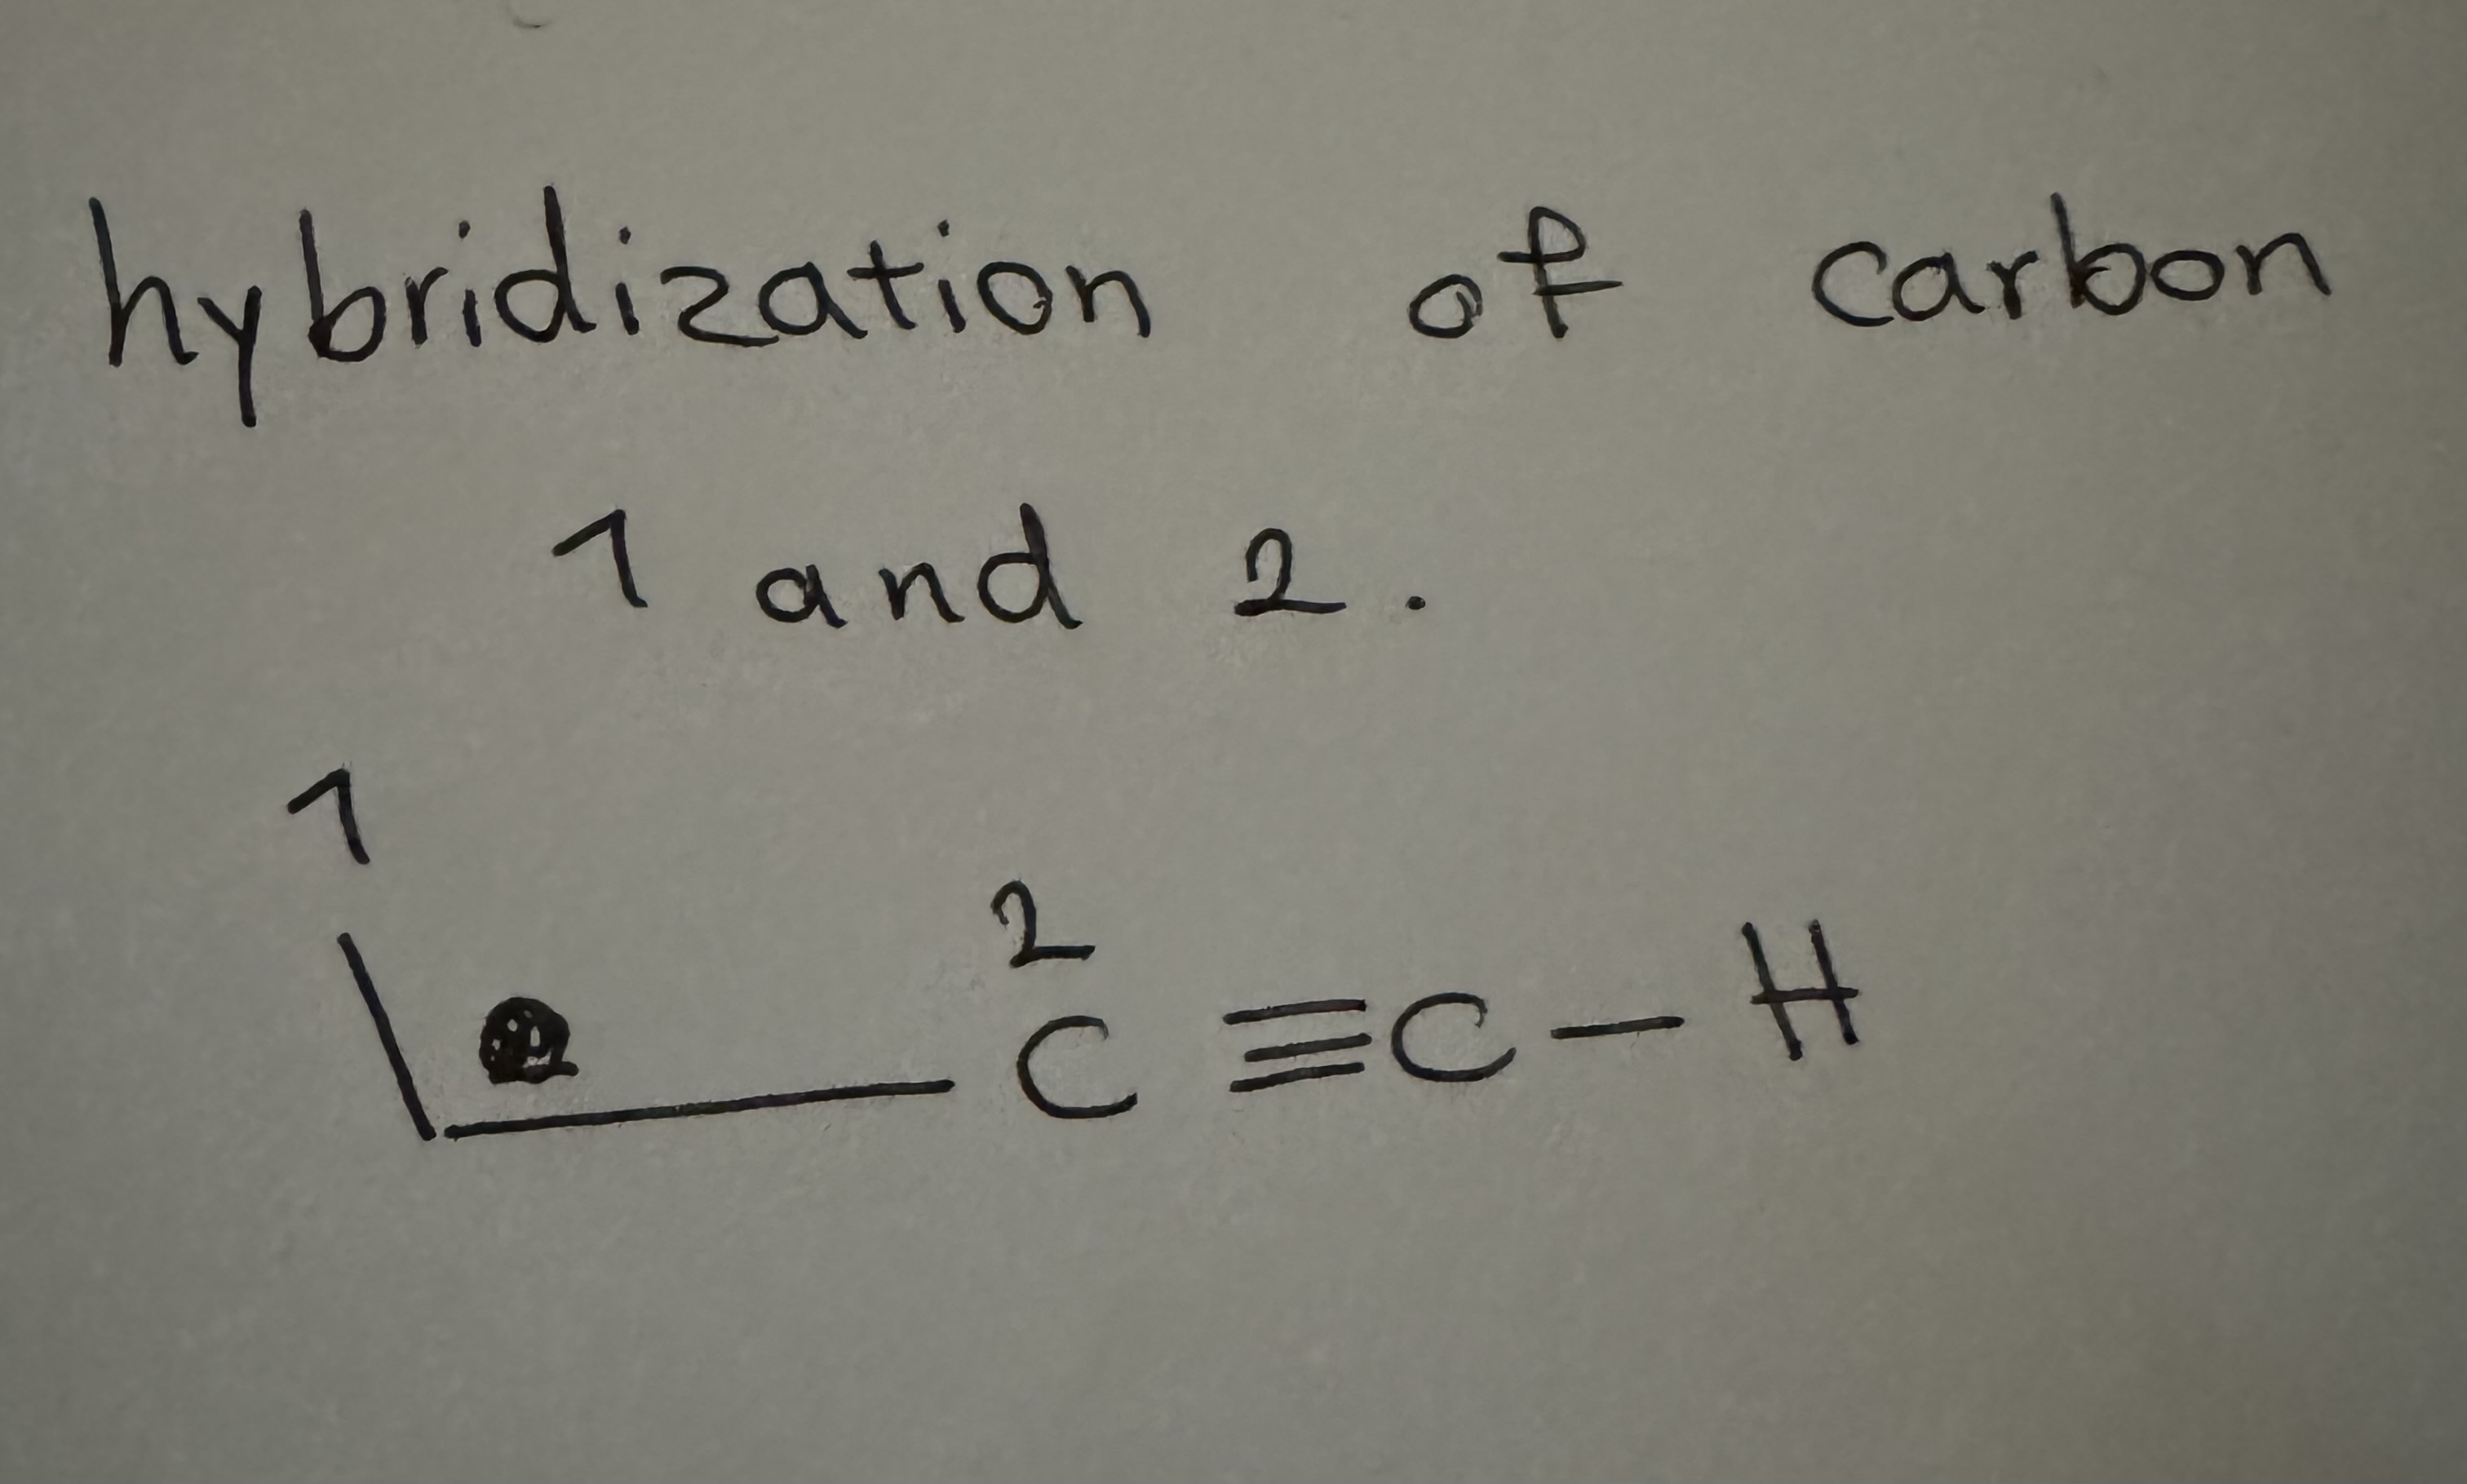 hybridization of carbon
1 and 2.
1
2
C ≡ C - H